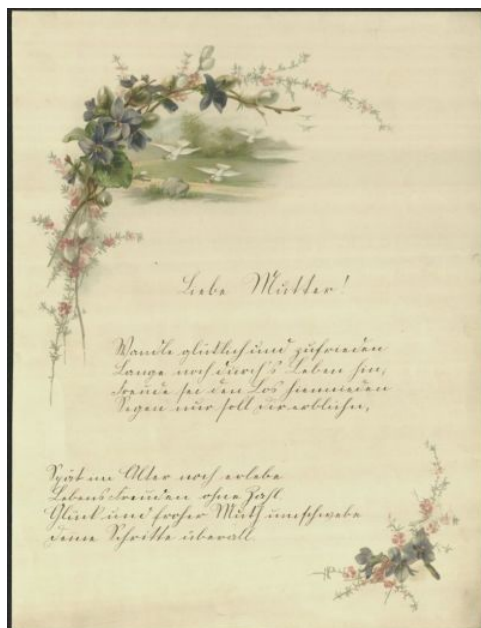 Liebe Mutter!
Wandle glücklich und zufrieden
Lange noch durch's Leben hin,
Freude sei dein Los hiernieden
Segen nur soll dir erblühn,
Spät im Alter noch erlebe
Lebensfreuden ohne Zahl
Glück und froher Muth umschwebe
deine Schritte überall.